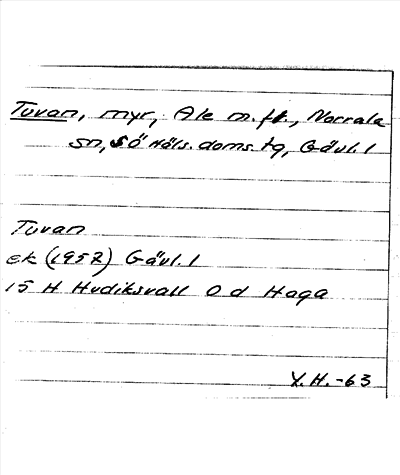 Tuvan, myr, Ale m.fl., Norrala
sn, SÖ Häls. doms. tg, Gävl. l
Tuvan
ek (1957) Gävl. l
15 H Hudiksvall 0 d Haga
Y.H.-63